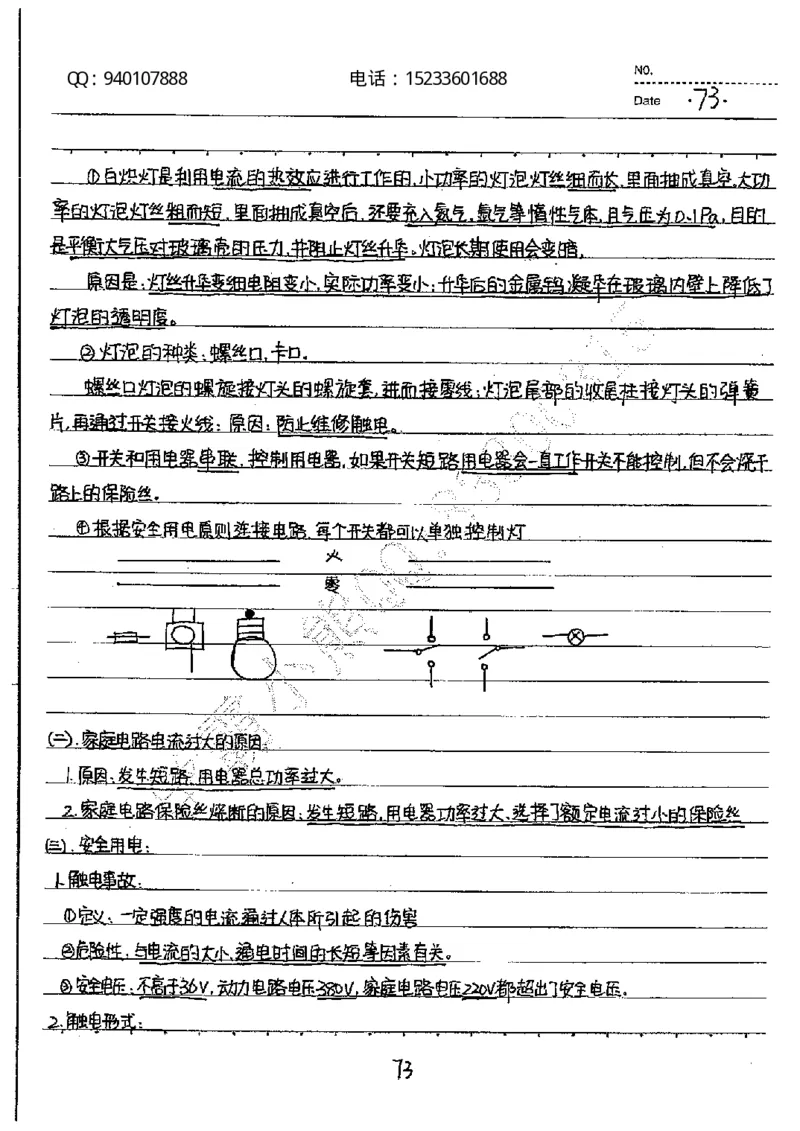 QQ：940107888 电话：15233601688 NO.
Date ·73·
①白炽灯是利用电流的热效应进行工作的,小功率的灯泡灯丝细而长,里面抽成真空,大功
率的灯泡灯丝粗而短,里面抽成真空后,还要充入氮气,氩气等惰性气体,且气压为0.1Pa,目的
是平衡大气压对玻璃壳的压力,并阻止灯丝升华。灯泡长期使用会变暗,
原因是:灯丝升华变细电阻变小,实际功率变小;升华后的金属钨凝华在玻璃内壁上降低了
灯泡的透明度。
②灯泡的种类:螺丝口,卡口。
螺丝口灯泡的螺旋接灯头的螺旋套,进而接零线;灯泡尾部的收尾柱接灯头的弹簧
片,再通过开关接火线;原因:防止维修触电。
③开关和用电器串联,控制用电器,如果开关短路用电器会一直工作开关不能控制,但不会烧干
路上的保险丝。
④根据安全用电原则连接电路,每个开关都可以单独控制灯
火
零
(二).家庭电路电流过大的原因
1.原因:发生短路、用电器总功率过大。
2.家庭电路保险丝烧断的原因:发生短路,用电器功率过大、选择了额定电流过小的保险丝
(三).安全用电:
1.触电事故:
①定义:一定强度的电流通过人体所引起的伤害
②危险性:与电流的大小、通电时间的长短等因素有关。
③安全电压:不高于36V,动力电路电压380V,家庭电路电压220V都超出了安全电压.
2.触电形式:
73